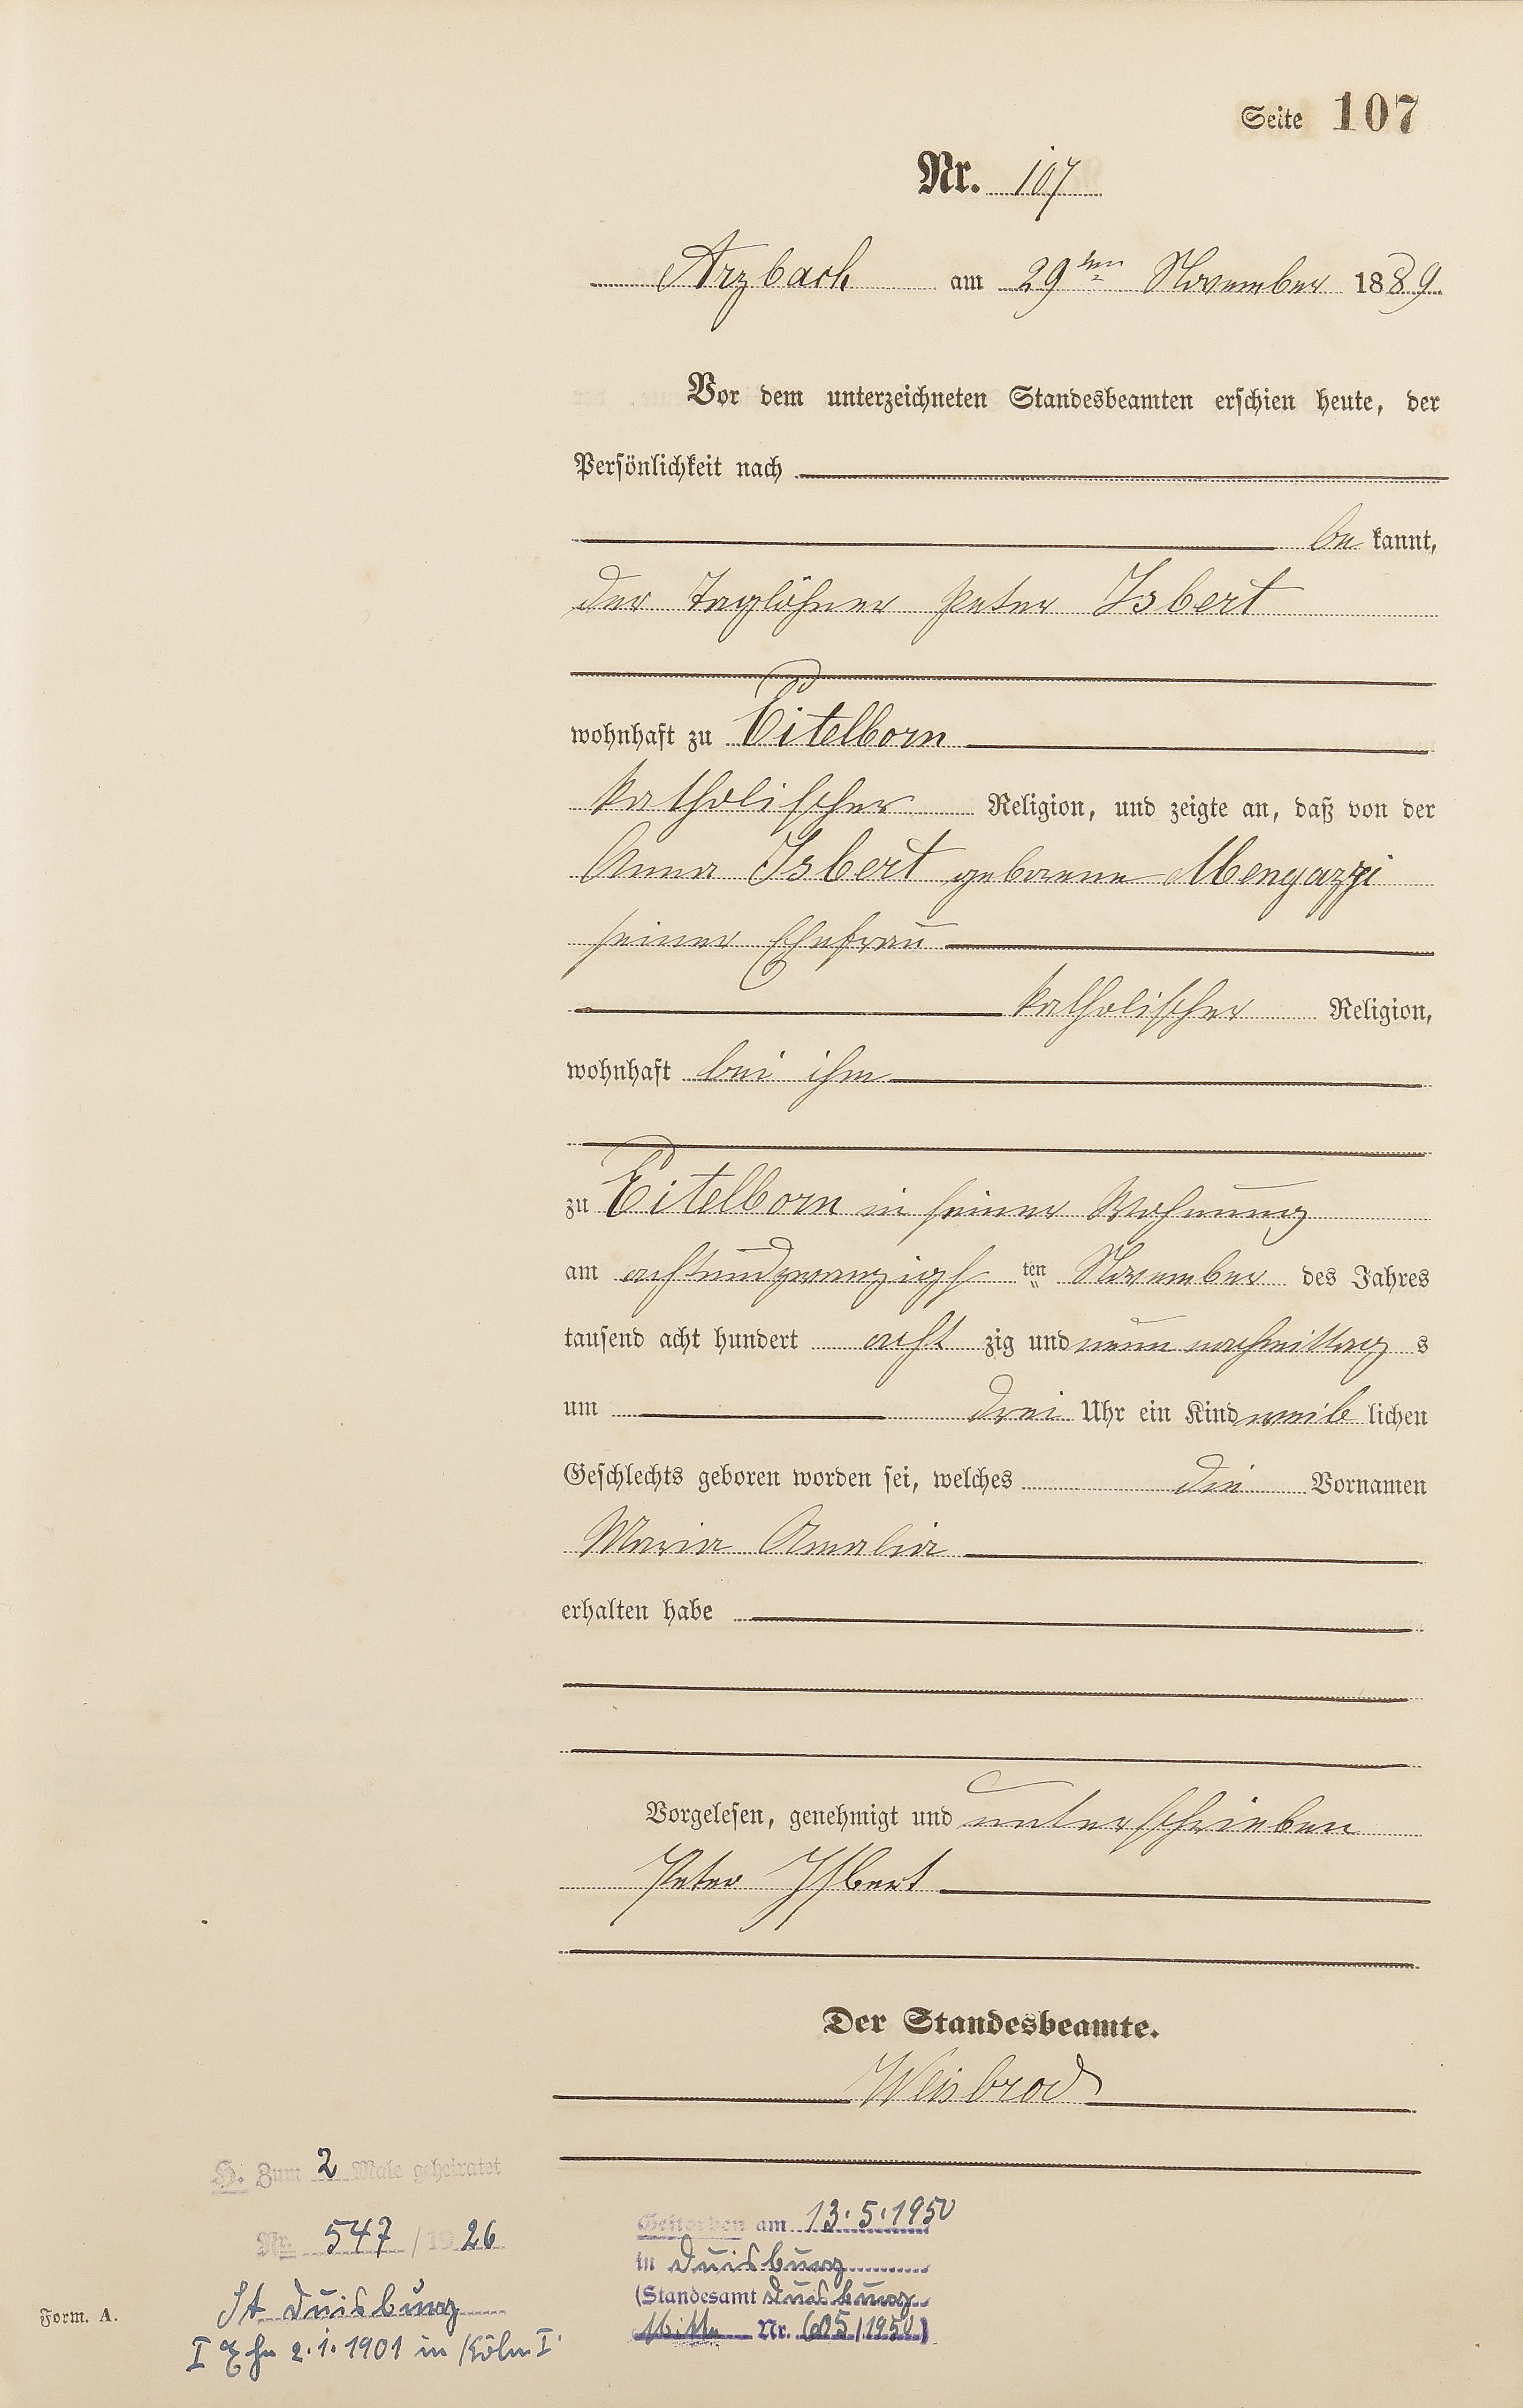 Seite 107
Nr. 107
Arzbach am 29ten November 1889
Vor dem unterzeichneten Standesbeamten erschien heute, der
Persönlichkeit nach
be kannt,
der Taglöhner Peter Isbert
wohnhaft zu Eitelborn
katholischer Religion, und zeigte an, daß von der
Anna Isbert geborene Mengazzi
seiner Ehefrau
katholischer Religion,
wohnhaft bei ihm
zu Eitelborn in seiner Wohnung
am achtundzwanzigs ten November des Jahres
tausend acht hundert acht zig und neun nachmittag s
um drei Uhr ein Kind weib lichen
Geschlechts geboren worden sei, welches die Vornamen
Maria Amalia
erhalten habe
Vorgelesen, genehmigt und unterschrieben
Peter Isbert
Der Standesbeamte.
Weisbrod
H. Zum 2 Male geheiratet
Nr. 547/1926
St. Duisburg
I 2.1.1901 in Köln I
Gestorben am 13.5.1950
in Duisburg
(Standesamt Duisburg
Mitte Nr. 605/1950)
Form. A.